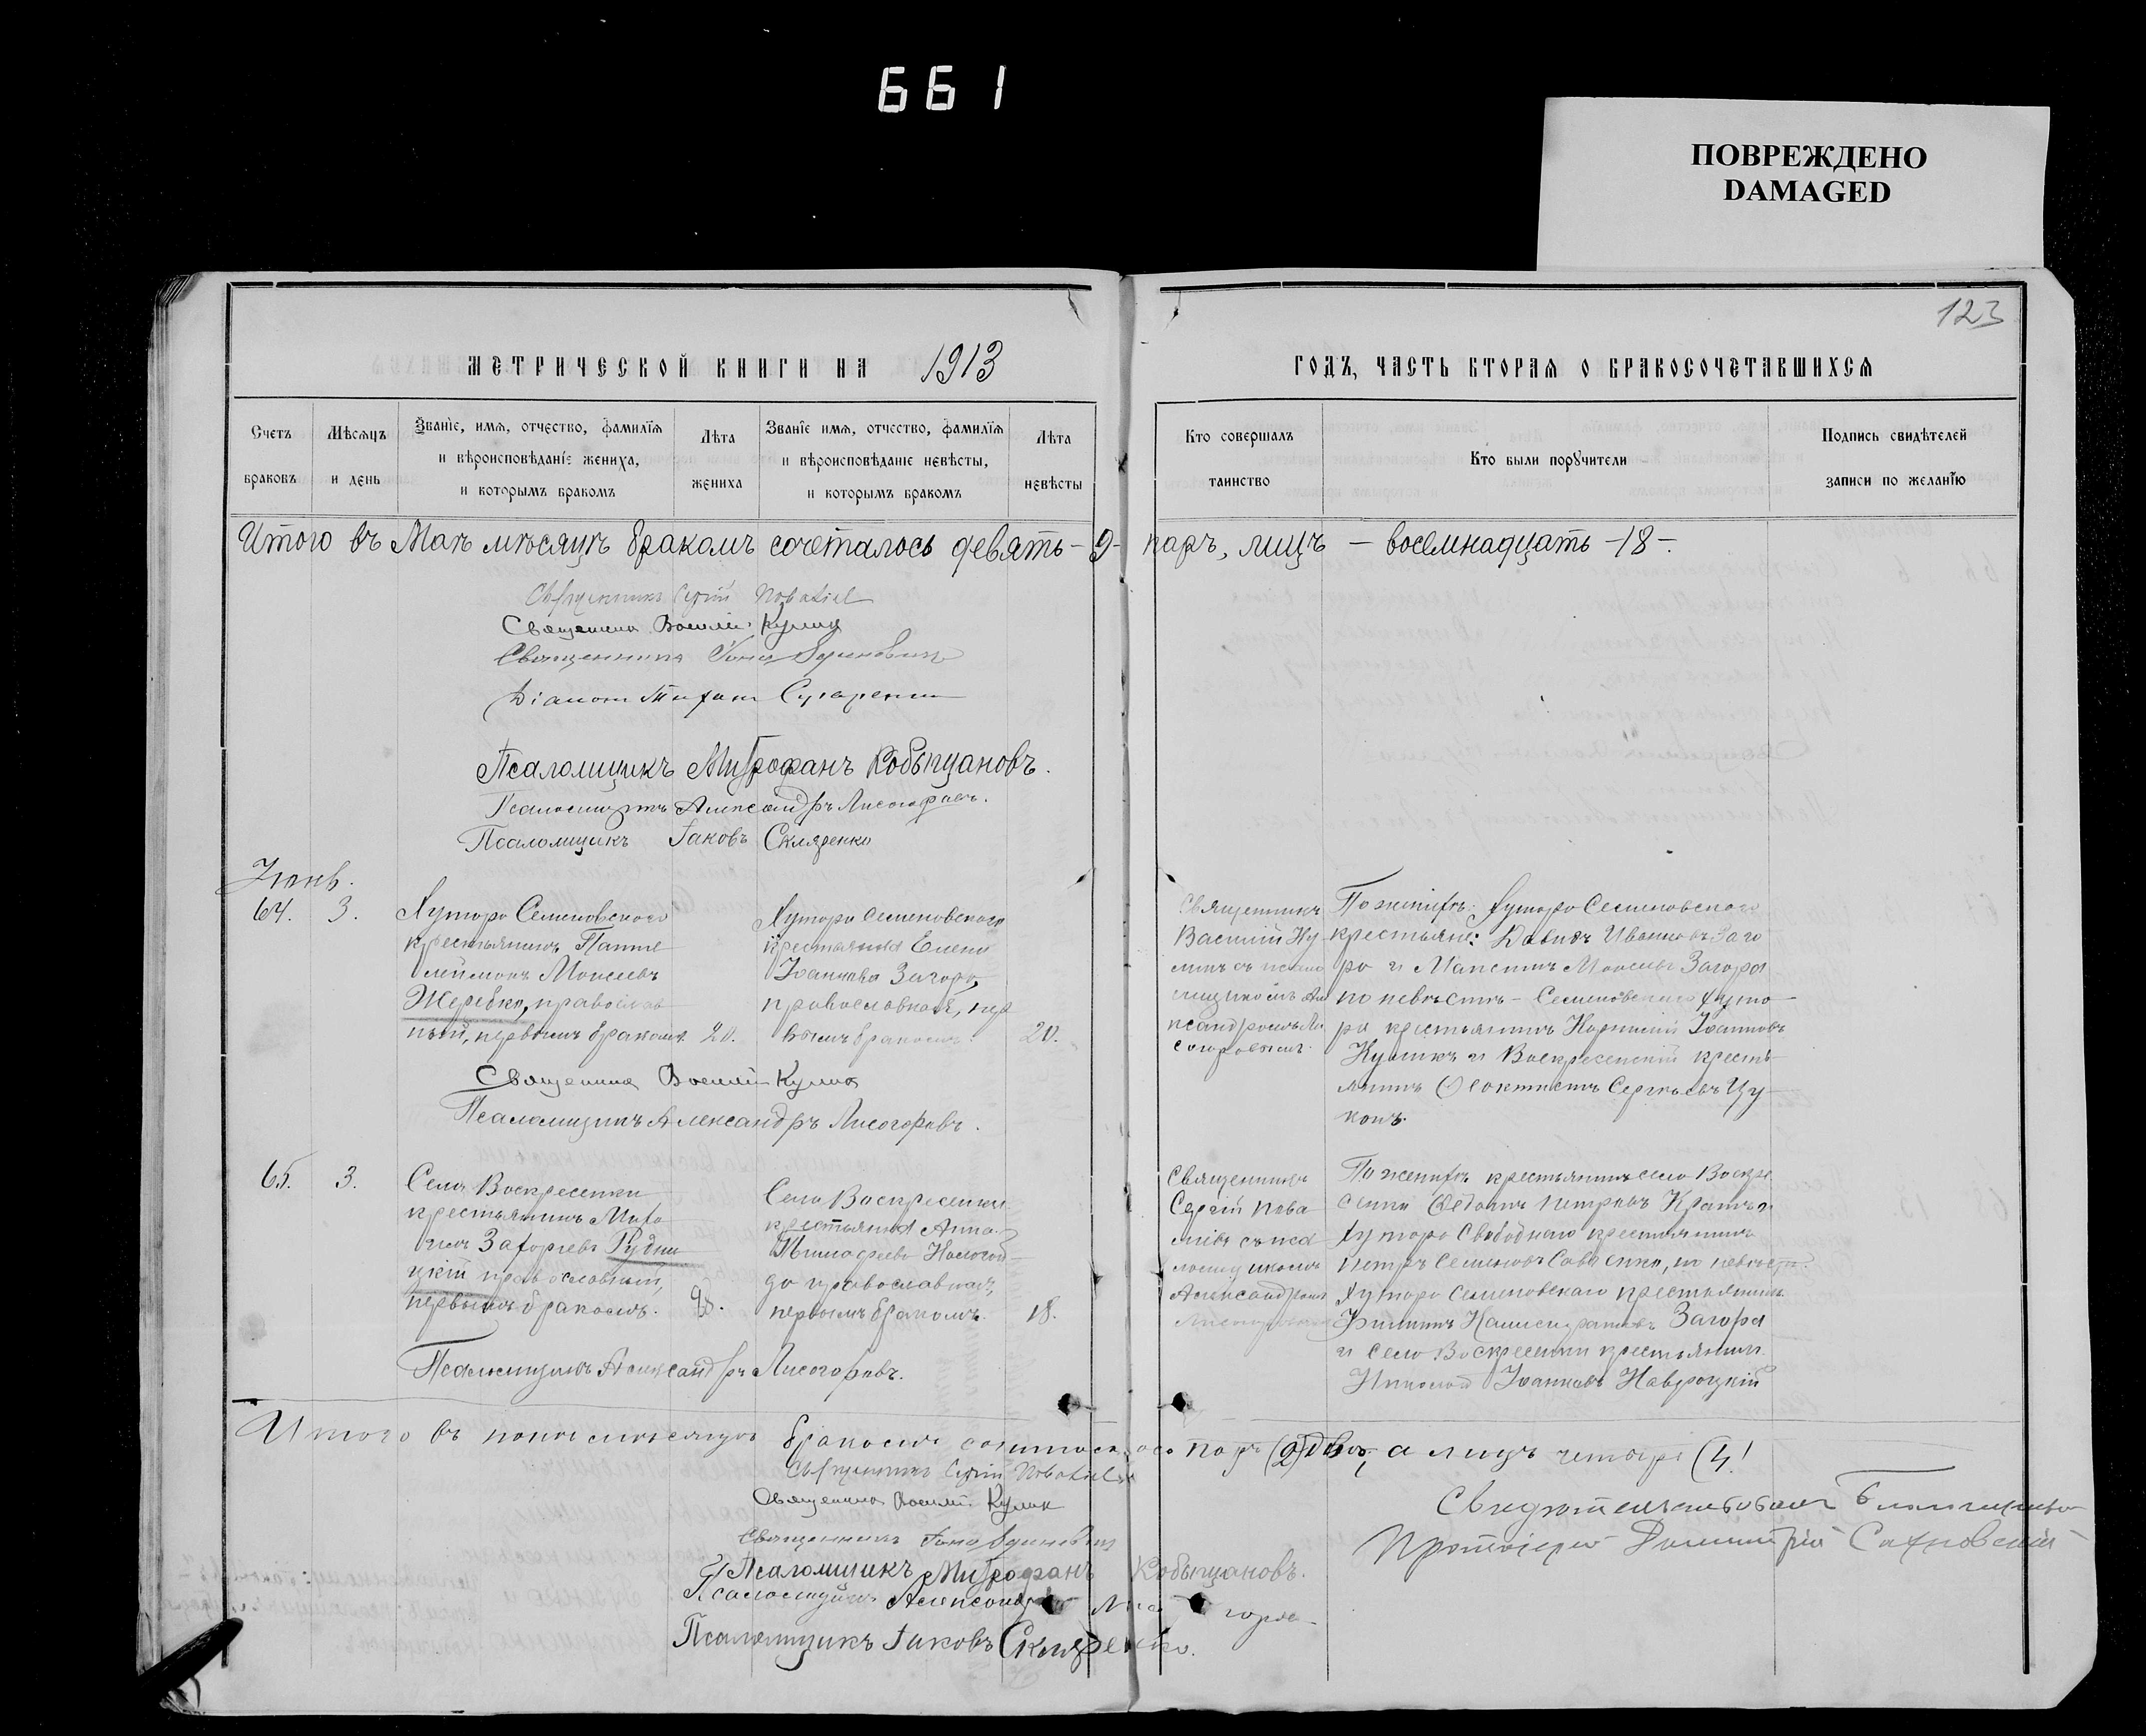 661
ПОВРЕЖДЕНО
DAMAGED
123
МЕТРИЧЕСКОЙ КНИГИ НА 1913
ГОДЪ, ЧАСТЬ ВТОРАЯ О БРАКОСОЧЕТАВШИХСЯ
Счетъ
браковъ
Мѣсяцъ
и день
Званіе, имя, отчество, фамилія
и вѣроисповѣданіе жениха,
и которымъ бракомъ
Лѣта
жениха
Званіе имя, отчество, фамилія
и вѣроисповѣданіе невѣсты,
и которымъ бракомъ
Лѣта
невѣсты
Кто совершалъ
таинство
Кто были поручители
Подпись свидѣтелей
записи по желанію
Итого въ Маѣ мѣсяцѣ бракомъ сочеталось девять - 9 - паръ, лицъ - восемнадцать - 18 -.
Священникъ Сергій
Священникъ Василій Куликъ
Священникъ
Діаконъ
Псаломщикъ Митрофанъ Кобыщановъ.
Псаломщикъ Александръ Лисогоревъ.
Псаломщикъ Іаковъ Скляренко
Іюнь.
64. 3.
Хутора Семеновскаго
крестьянинъ Панте
леймонъ Моисеевъ
Жеребко, православ
ный, первымъ бракомъ. 20.
Хутора Семеновскаго
крестьянка Елена
Іоаннова Загора,
православная, пер
вымъ бракомъ. 20.
Священникъ
Василій Ку
ликъ съ псало
мщикомъ Але
ксандромъ Ли
согоровымъ.
По женихѣ: хутора Семеновскаго
крестьяне: Давидъ Ивановъ Заго
ра и Максимъ Моисеевъ Загора
по невѣстѣ - Семеновскаго хуто
ра крестьянинъ Іоанновъ
Куликъ и Воскресенскій кресть
янинъ Ѳеоктистъ Сергѣевъ Цу
конъ.
Священникъ Василій Куликъ
Псаломщикъ Александръ Лисогоревъ.
65. 3.
Села Воскресенки
крестьянинъ Миха
илъ Захаріевъ Рудни
цкій православный,
первымъ бракомъ.
Села Воскресенки
крестьянка Анна
Тимофеева
православная,
первымъ бракомъ. 18.
Священникъ
Сергій Нова
съ пса
ломщикомъ
Александромъ
По женихѣ крестьянинъ села Воскре
сенки Петровъ и
хутора Свободнаго крестьянинъ
Петръ Семеновъ Савченко, по невѣстѣ.
Хутора Семеновскаго крестьянинъ
Филиппъ Загора
и села Воскресенки крестьянинъ
Николай Іоанновъ Навроцкій
Псаломщикъ Александръ Лисогоревъ.
Итого въ іюнѣ мѣсяцѣ бракомъ паръ (2) двѣ, а лицъ четыре (4!
Священникъ Сергій
Священникъ Василій Куликъ
Священникъ
Псаломщикъ Митрофанъ Кобыщановъ.
Псаломщикъ Александръ
Псаломщикъ Іаковъ Скляренко.
Свидѣтельствовалъ Благочинный
Протоіерей Димитрій Сахновскій